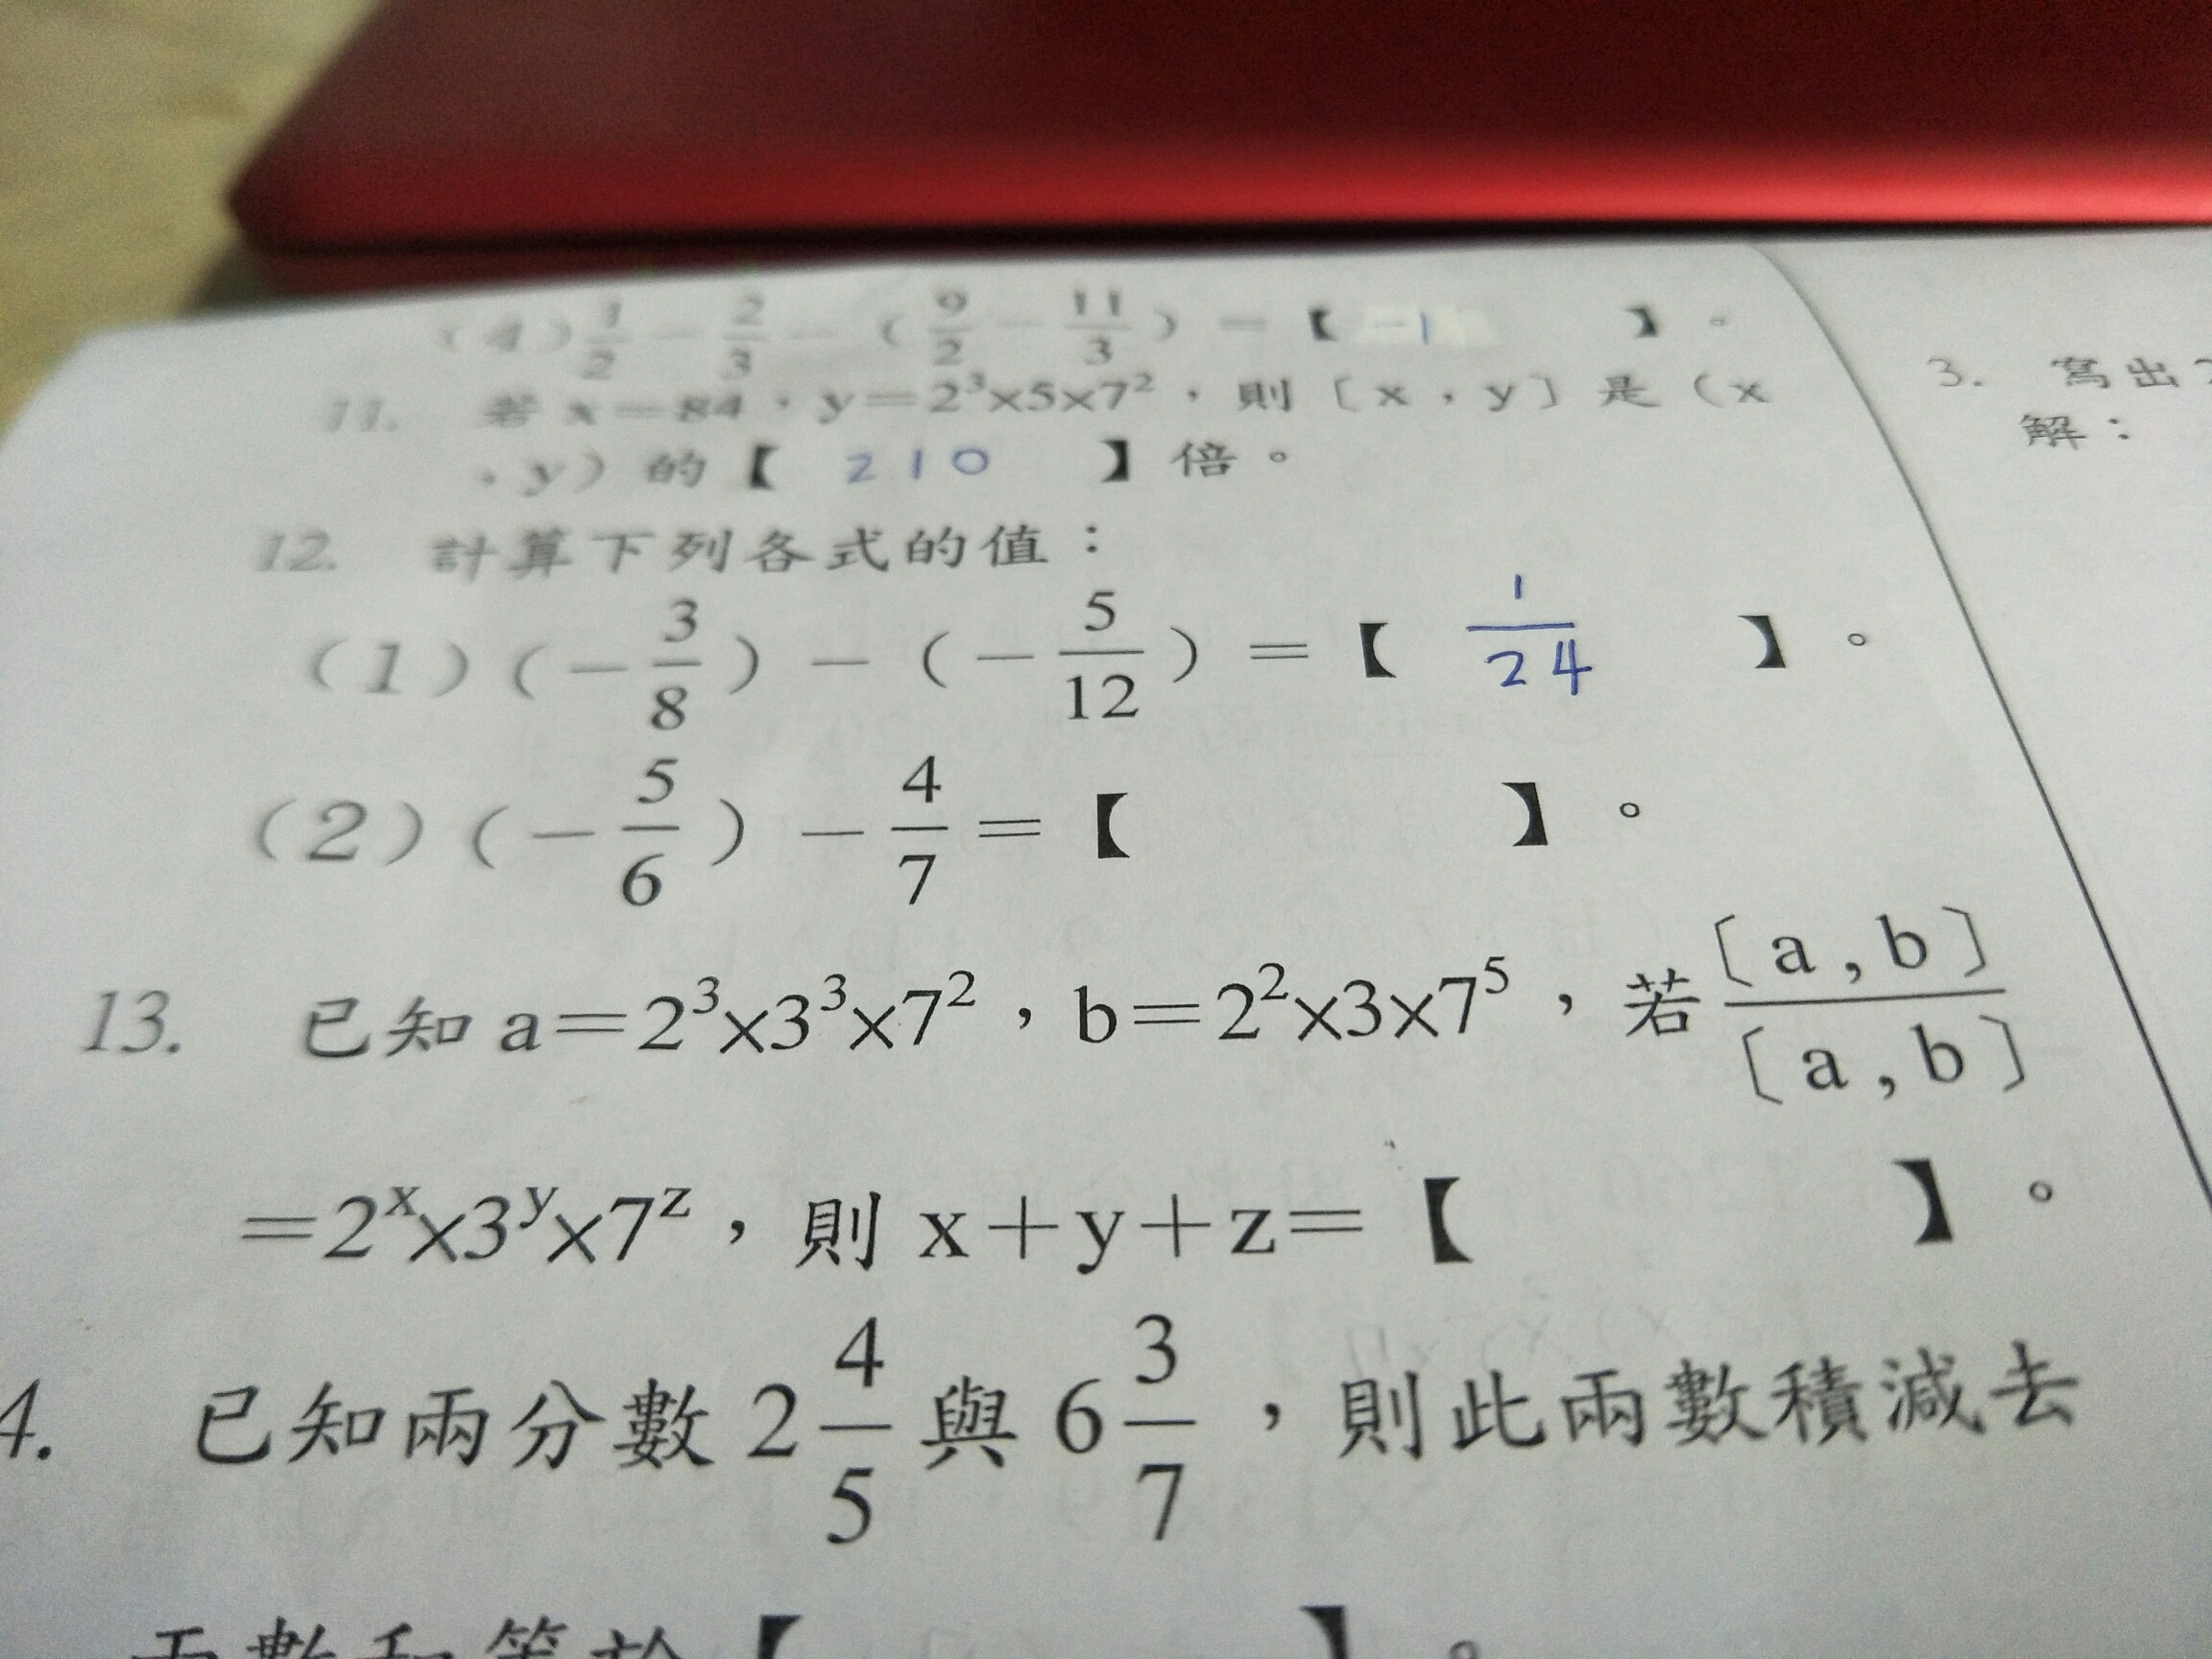 (4) 1/2 - 2/3 - (9/2 - 11/3) = 【 -1 】。
11. 若 x=84,y=2³×5×7²,則〔x,y〕是(x
,y)的【 210 】倍。
12. 計算下列各式的值:
(1)(-3/8)-(-5/12)=【 1/24 】。
(2)(-5/6)-4/7=【 】。
13. 已知 a=2³×3³×7²,b=2²×3×7⁵,若〔a,b〕/〔a,b〕
=2ˣ×3ʸ×7ᶻ,則 x+y+z=【 】。
4. 已知兩分數 2 4/5 與 6 3/7,則此兩數積減去
兩數和等於【 】。
3. 寫出
解: